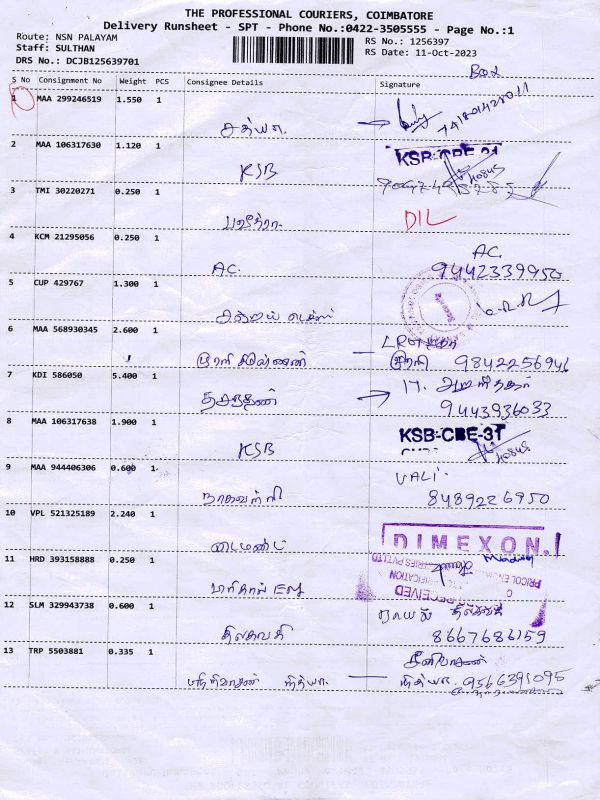 THE PROFESSIONAL COURIERS, COIMBATORE
Delivery Runsheet - SPT - Phone No.:0422-3505555 - Page No.:1
Route: NSN PALAYAM
RS No.: 1256397
Staff: SULTHAN
RS Date: 11-Oct-2023
DRS No.: DCJB125639701
BOX
S No Consignment No Weight PCS Consignee Details Signature
1 MAA 299246519 1.550 1
சத்யா.
2 MAA 106317630 1.120 1
KSB
KSB-CBE-31
40845
3 TMI 30220271 0.250 1
பவித்ரா.
DIL
4 KCM 21295056 0.250 1
AC.
AC.
9442339950
5 CUP 429767 1.300 1
6 MAA 568930345 2.600 1
முரளி 9842256946
7 KDI 586050 5.400 1
9443936033
8 MAA 106317638 1.900 1
KSB
KSB-CBE-31
40845
9 MAA 944406306 0.600 1
VALLI
8489226950
10 VPL 521325189 2.240 1
டைமண்ட்
DIMEXON.
11 HRD 393158888 0.250 1
PRICOL ENGINEERING INDUSTRIES PVT LTD
RECEIVED
12 SLM 329943738 0.600 1
திலகவதி
8667686159
13 TRP 5503881 0.335 1
சீனிவாசன்
நித்யா. நித்யா. 9566391095